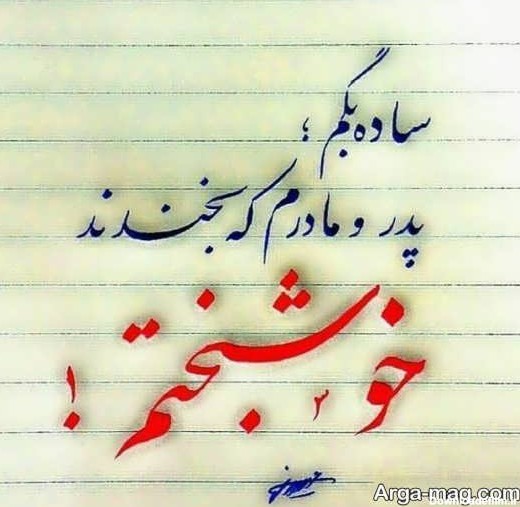 ساده بگم ؛
پدر و مادرم که بخندند
خوشبختم !
Arga-mag.com